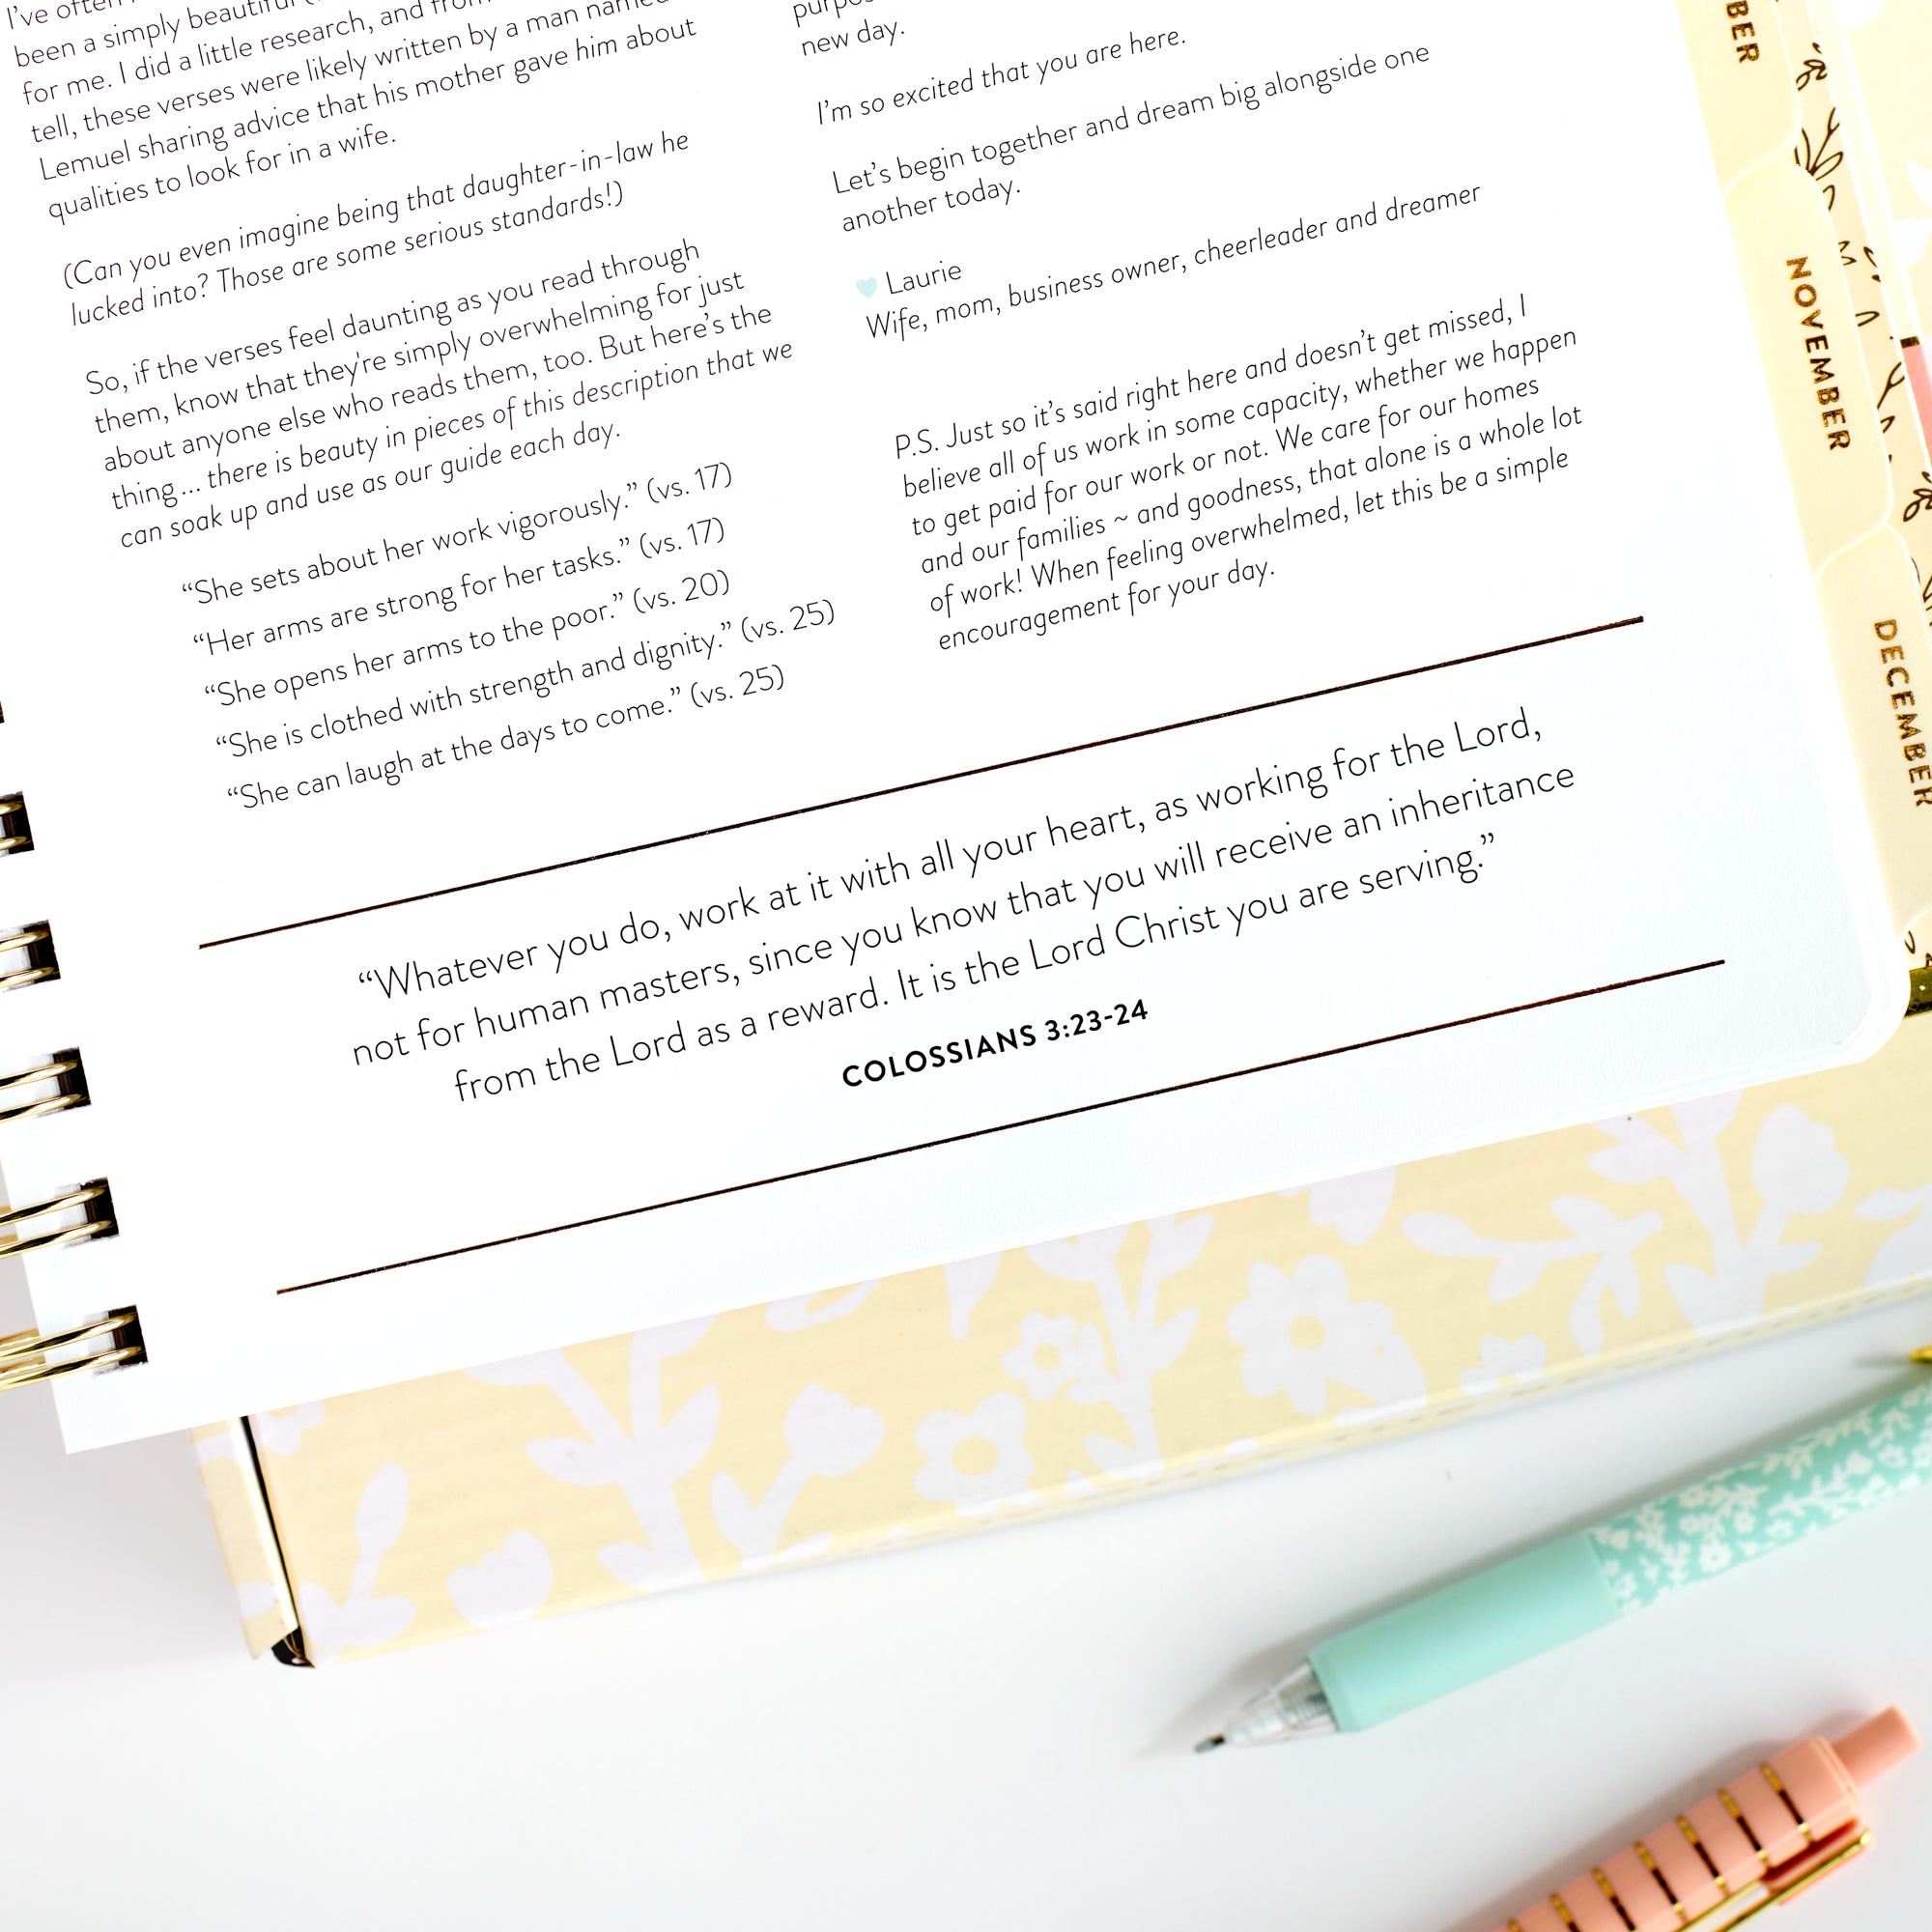 I've often
been a simply beautiful
for me. I did a little research, and from
tell, these verses were likely written by a man named
Lemuel sharing advice that his mother gave him about
qualities to look for in a wife.
(Can you even imagine being that daughter-in-law he
lucked into? Those are some serious standards!)
So, if the verses feel daunting as you read through
them, know that they're simply overwhelming for just
about anyone else who reads them, too. But here's the
thing... there is beauty in pieces of this description that we
can soak up and use as our guide each day.
“She sets about her work vigorously.” (vs. 17)
“Her arms are strong for her tasks.” (vs. 17)
“She opens her arms to the poor.” (vs. 20)
“She is clothed with strength and dignity.” (vs. 25)
“She can laugh at the days to come.” (vs. 25)
new day.
I'm so excited that you are here.
Let's begin together and dream big alongside one
another today.
Laurie
Wife, mom, business owner, cheerleader and dreamer
P.S. Just so it's said right here and doesn't get missed, I
believe all of us work in some capacity, whether we happen
to get paid for our work or not. We care for our homes
and our families ~ and goodness, that alone is a whole lot
of work! When feeling overwhelmed, let this be a simple
encouragement for your day.
“Whatever you do, work at it with all your heart, as working for the Lord,
not for human masters, since you know that you will receive an inheritance
from the Lord as a reward. It is the Lord Christ you are serving.”
COLOSSIANS 3:23-24
BER
NOVEMBER
DECEMBER